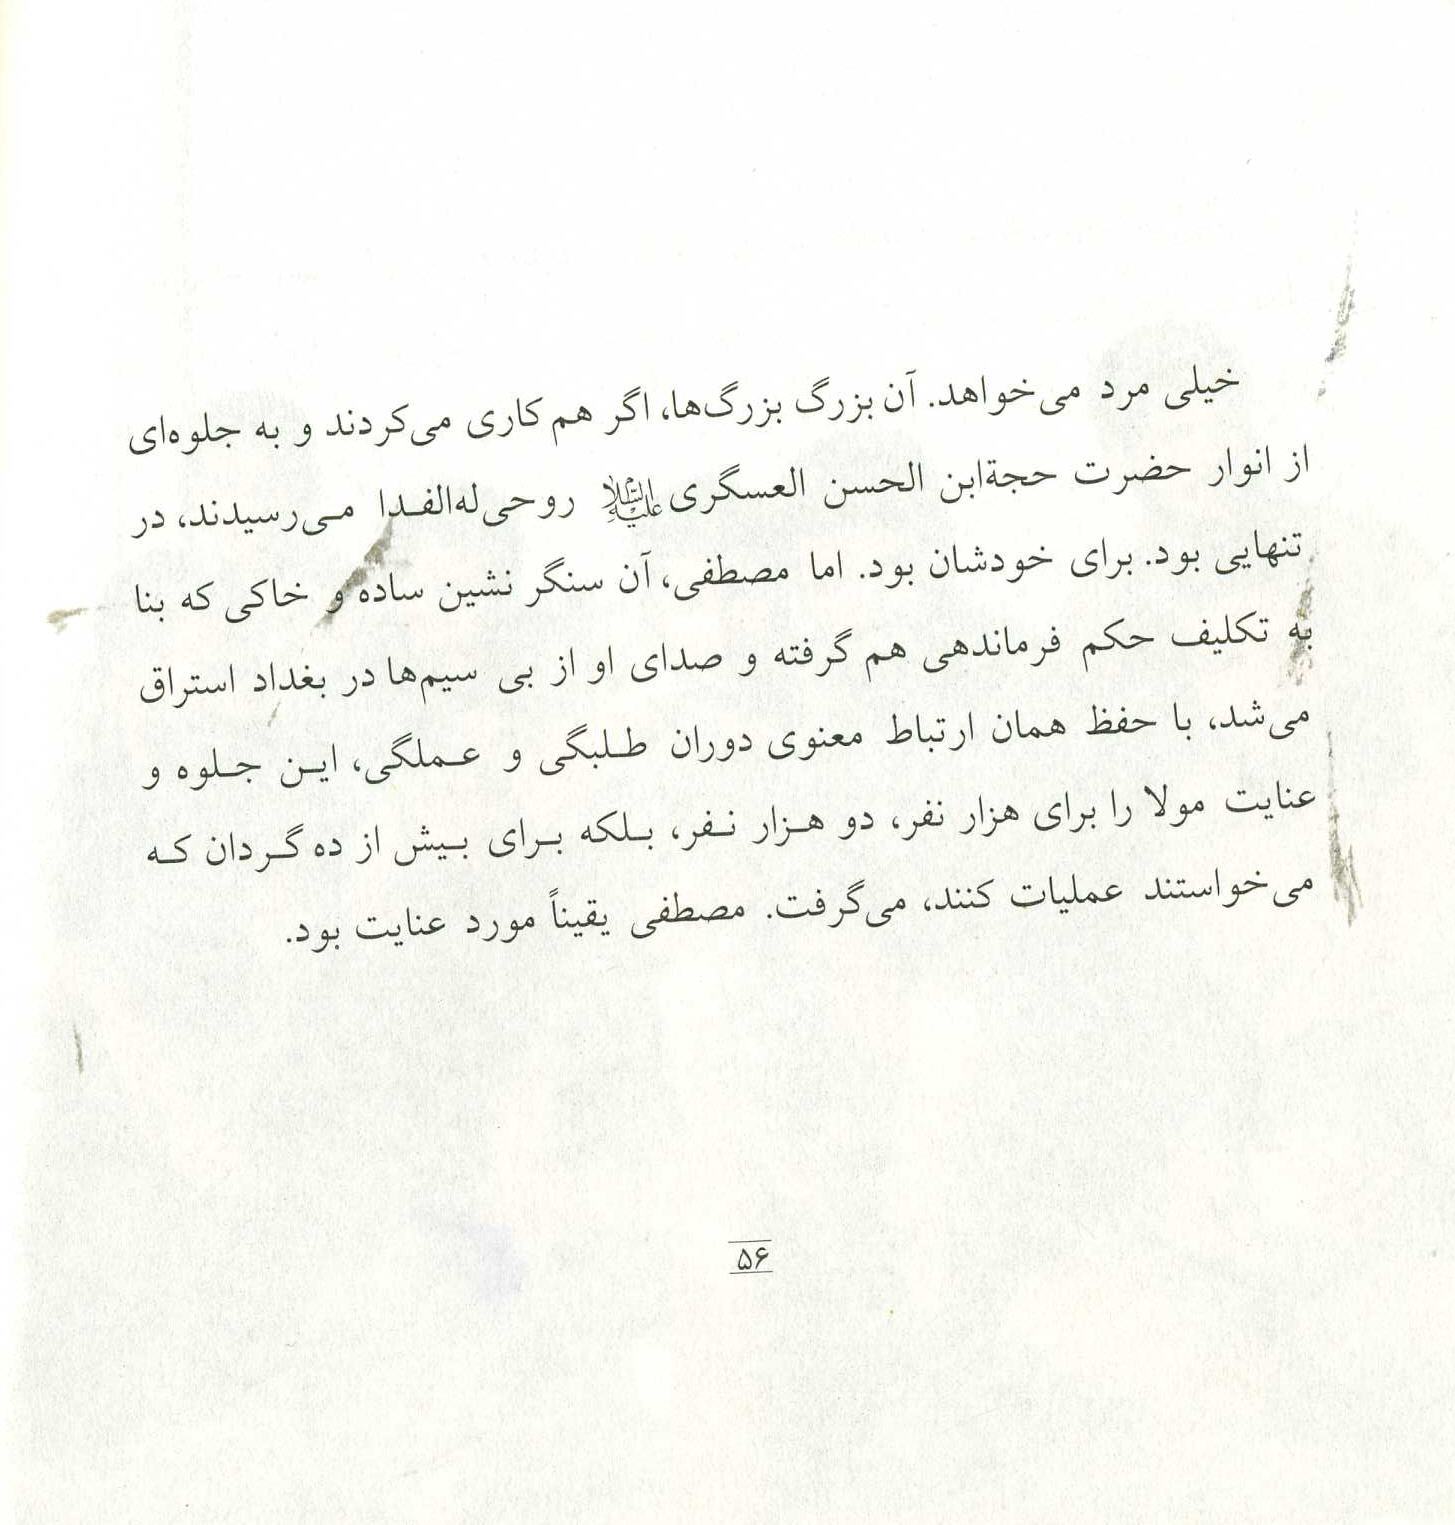 خیلی مرد می‌خواهد. آن بزرگ بزرگ‌ها، اگر هم کاری می‌کردند و به جلوه‌ای
از انوار حضرت حجةابن الحسن العسگری علیه‌السلام روحی‌له‌الفدا می‌رسیدند، در
تنهایی بود. برای خودشان بود. اما مصطفی، آن سنگر نشین ساده و خاکی که بنا
به تکلیف حکم فرماندهی هم گرفته و صدای او از بی سیم‌ها در بغداد استراق
می‌شد، با حفظ همان ارتباط معنوی دوران طلبگی و عملگی، این جلوه و
عنایت مولا را برای هزار نفر، دو هزار نفر، بلکه برای بیش از ده گردان که
می‌خواستند عملیات کنند، می‌گرفت. مصطفی یقیناً مورد عنایت بود.
۵۶